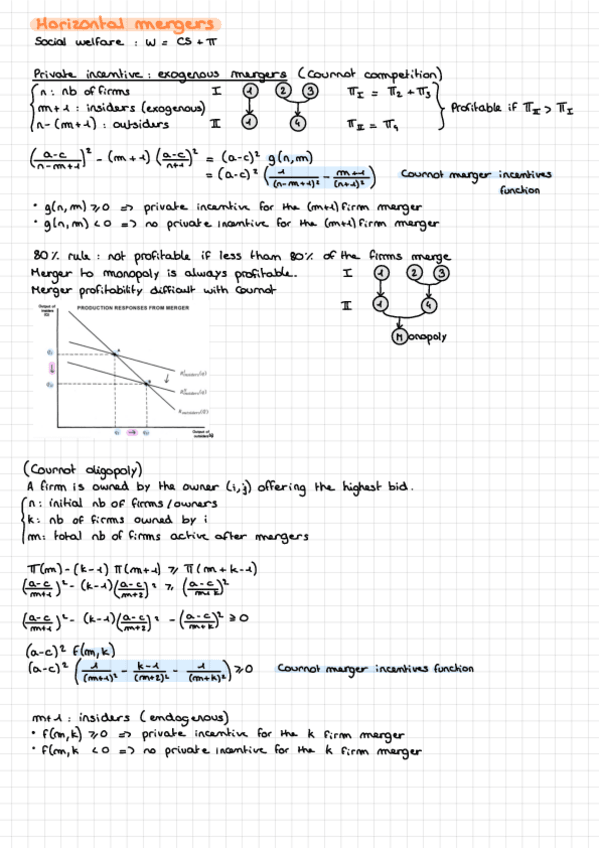 Horizontal mergers
Social welfare : W = CS + π
Private incentive : exogenous mergers (Cournot competition)
n : nb of firms I 1 2 3 π_I = π_2 + π_3
m+1 : insiders (exogenous) Profitable if π_II > π_I
n-(m+1) : outsiders II 1 4 π_II = π_4
((a-c)/(n-m+1))² - (m+1) ((a-c)/(n+1))² = (a-c)² g(n,m)
= (a-c)² (1/(n-m+1)² - (m+1)/(n+1)²) Cournot merger incentives function
• g(n,m) ≥ 0 => private incentive for the (m+1) firm merger
• g(n,m) < 0 => no private incentive for the (m+1) firm merger
80% rule : not profitable if less than 80% of the firms merge
Merger to monopoly is always profitable. I 1 2 3
Merger profitability difficult with Cournot II 1 4
Monopoly
PRODUCTION RESPONSES FROM MERGER
Output of insiders
Output of outsiders
(Cournot oligopoly)
A firm is owned by the owner (i,j) offering the highest bid.
n : initial nb of firms/owners
k : nb of firms owned by i
m : total nb of firms active after mergers
π(m) - (k-1) π(m+1) ≥ π(m+k-1)
((a-c)/(m+1))² - (k-1) ((a-c)/(m+2))² ≥ ((a-c)/(m+k))²
((a-c)/(m+1))² - (k-1) ((a-c)/(m+2))² - ((a-c)/(m+k))² ≥ 0
(a-c)² f(m,k)
(a-c)² (1/(m+1)² - (k-1)/(m+2)² - 1/(m+k)²) ≥ 0 Cournot merger incentives function
m+1 : insiders (endogenous)
• f(m,k) ≥ 0 => private incentive for the k firm merger
• f(m,k < 0 => no private incentive for the k firm merger